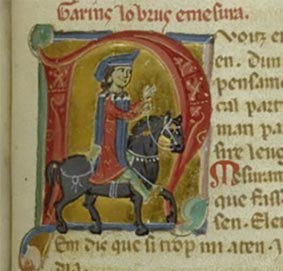 Garins lo bruç emesura.
Voitz e
en. dun
pensam
cal part
man pa
sire leng
Mesuram
que fass
sen. Elen
Em die que si trop mi aten. J
dia